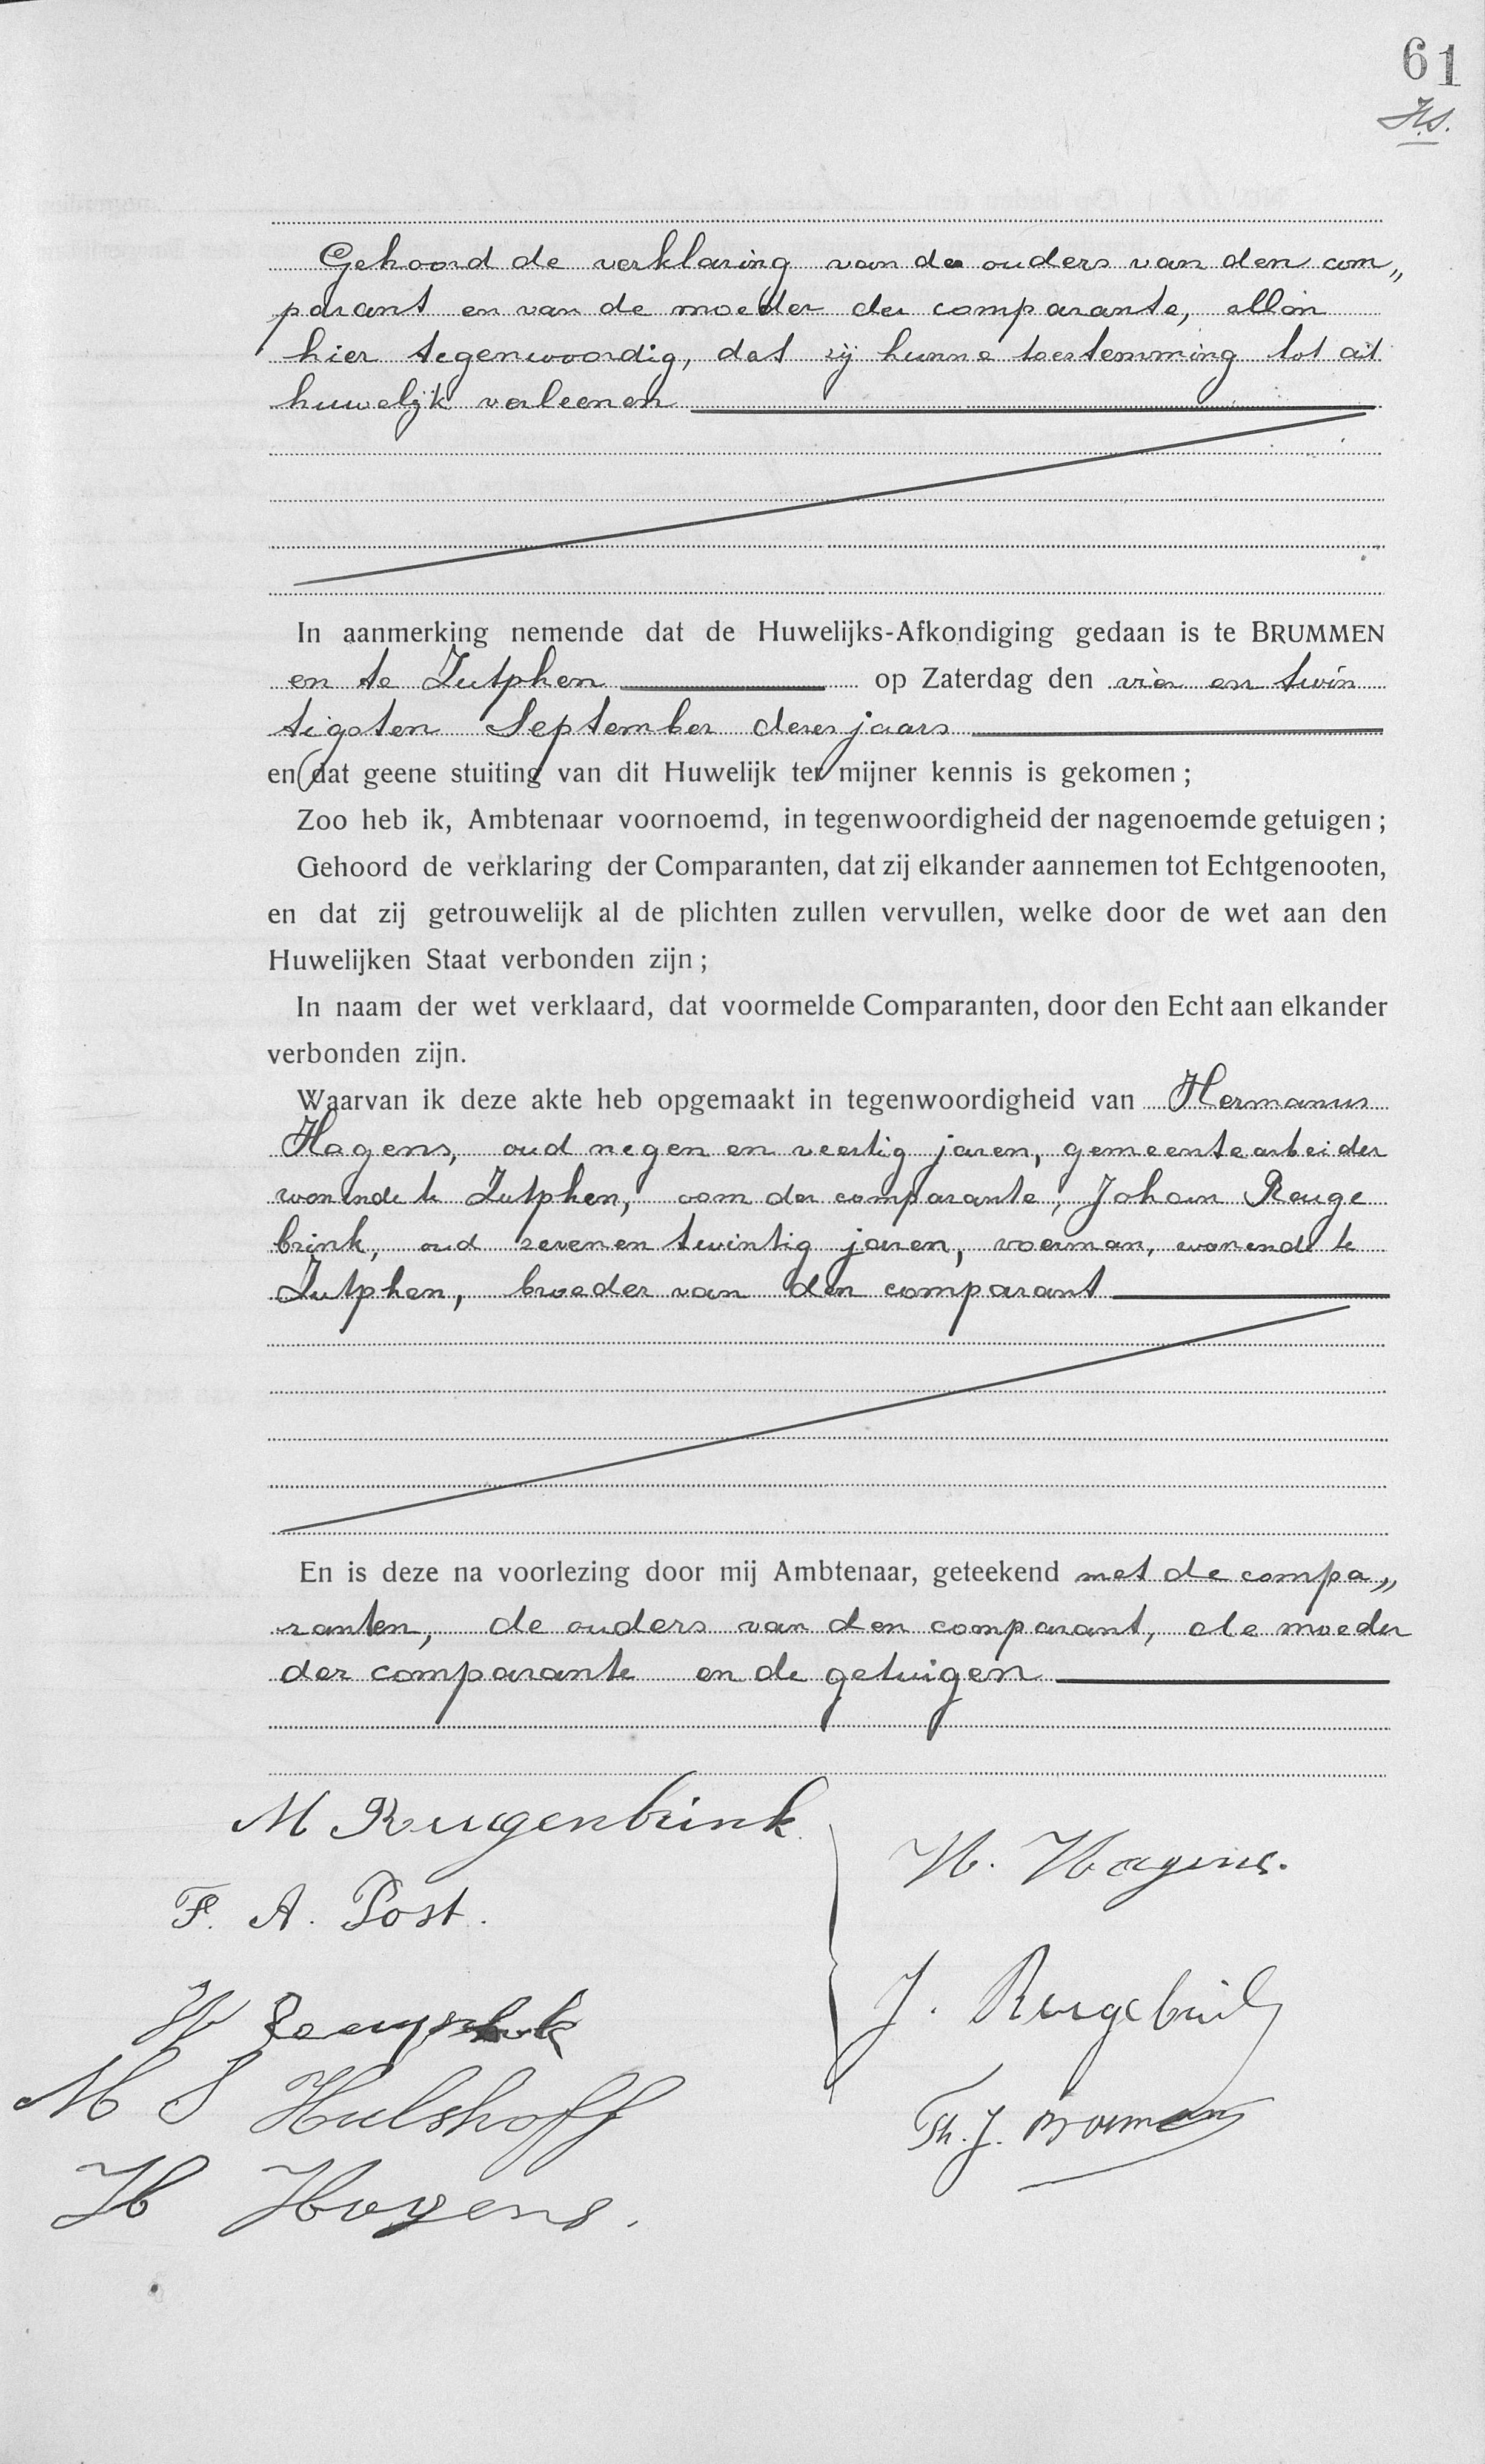 61
H.S.
Gehoord de verklaring van de ouders van den com„
parant en van de moeder der comparante, allen
hier tegenwoordig, dat zij hunne toestemming tot dit
huwelijk verleenen
In aanmerking nemende dat de Huwelijks-Afkondiging gedaan is te BRUMMEN
en te Zutphen op Zaterdag den vier en twin
tigsten September dezes jaars
en dat geene stuiting van dit Huwelijk ter mijner kennis is gekomen;
Zoo heb ik, Ambtenaar voornoemd, in tegenwoordigheid der nagenoemde getuigen;
Gehoord de verklaring der Comparanten, dat zij elkander aannemen tot Echtgenooten,
en dat zij getrouwelijk al de plichten zullen vervullen, welke door de wet aan den
Huwelijken Staat verbonden zijn;
In naam der wet verklaard, dat voormelde Comparanten, door den Echt aan elkander
verbonden zijn.
Waarvan ik deze akte heb opgemaakt in tegenwoordigheid van Hermanus
Hagens, oud negen en veertig jaren, gemeentearbeider
wonende te Zutphen, oom der comparante, Johan Reuge
brink, oud zeven en twintig jaren, voerman, wonende te
Zutphen, broeder van den comparant
En is deze na voorlezing door mij Ambtenaar, geteekend met de compa„
ranten, de ouders van den comparant, de moeder
der comparante en de getuigen
M Reugenbrink
H. Hagens.
F. A. Post.
J. Reugebrink
M S Hulshoff
Th. J.
H Hogens.